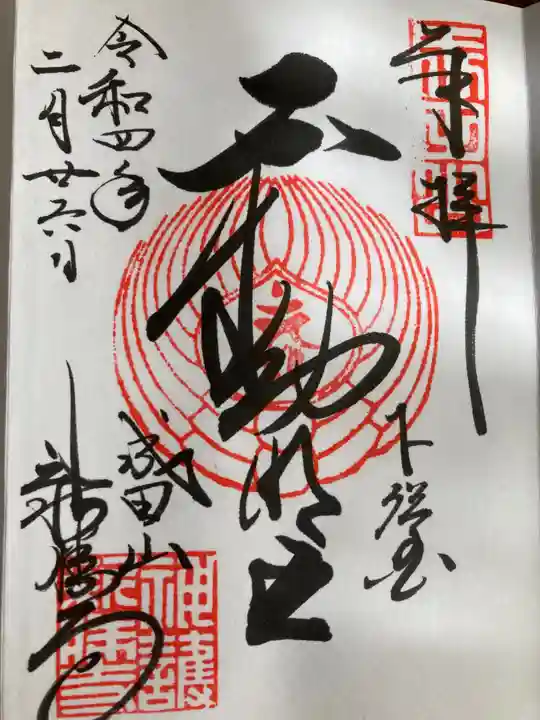 奉拝
下総国
不動明王
成田山
新勝寺
令和四年
二月廿六日
神護
新勝寺